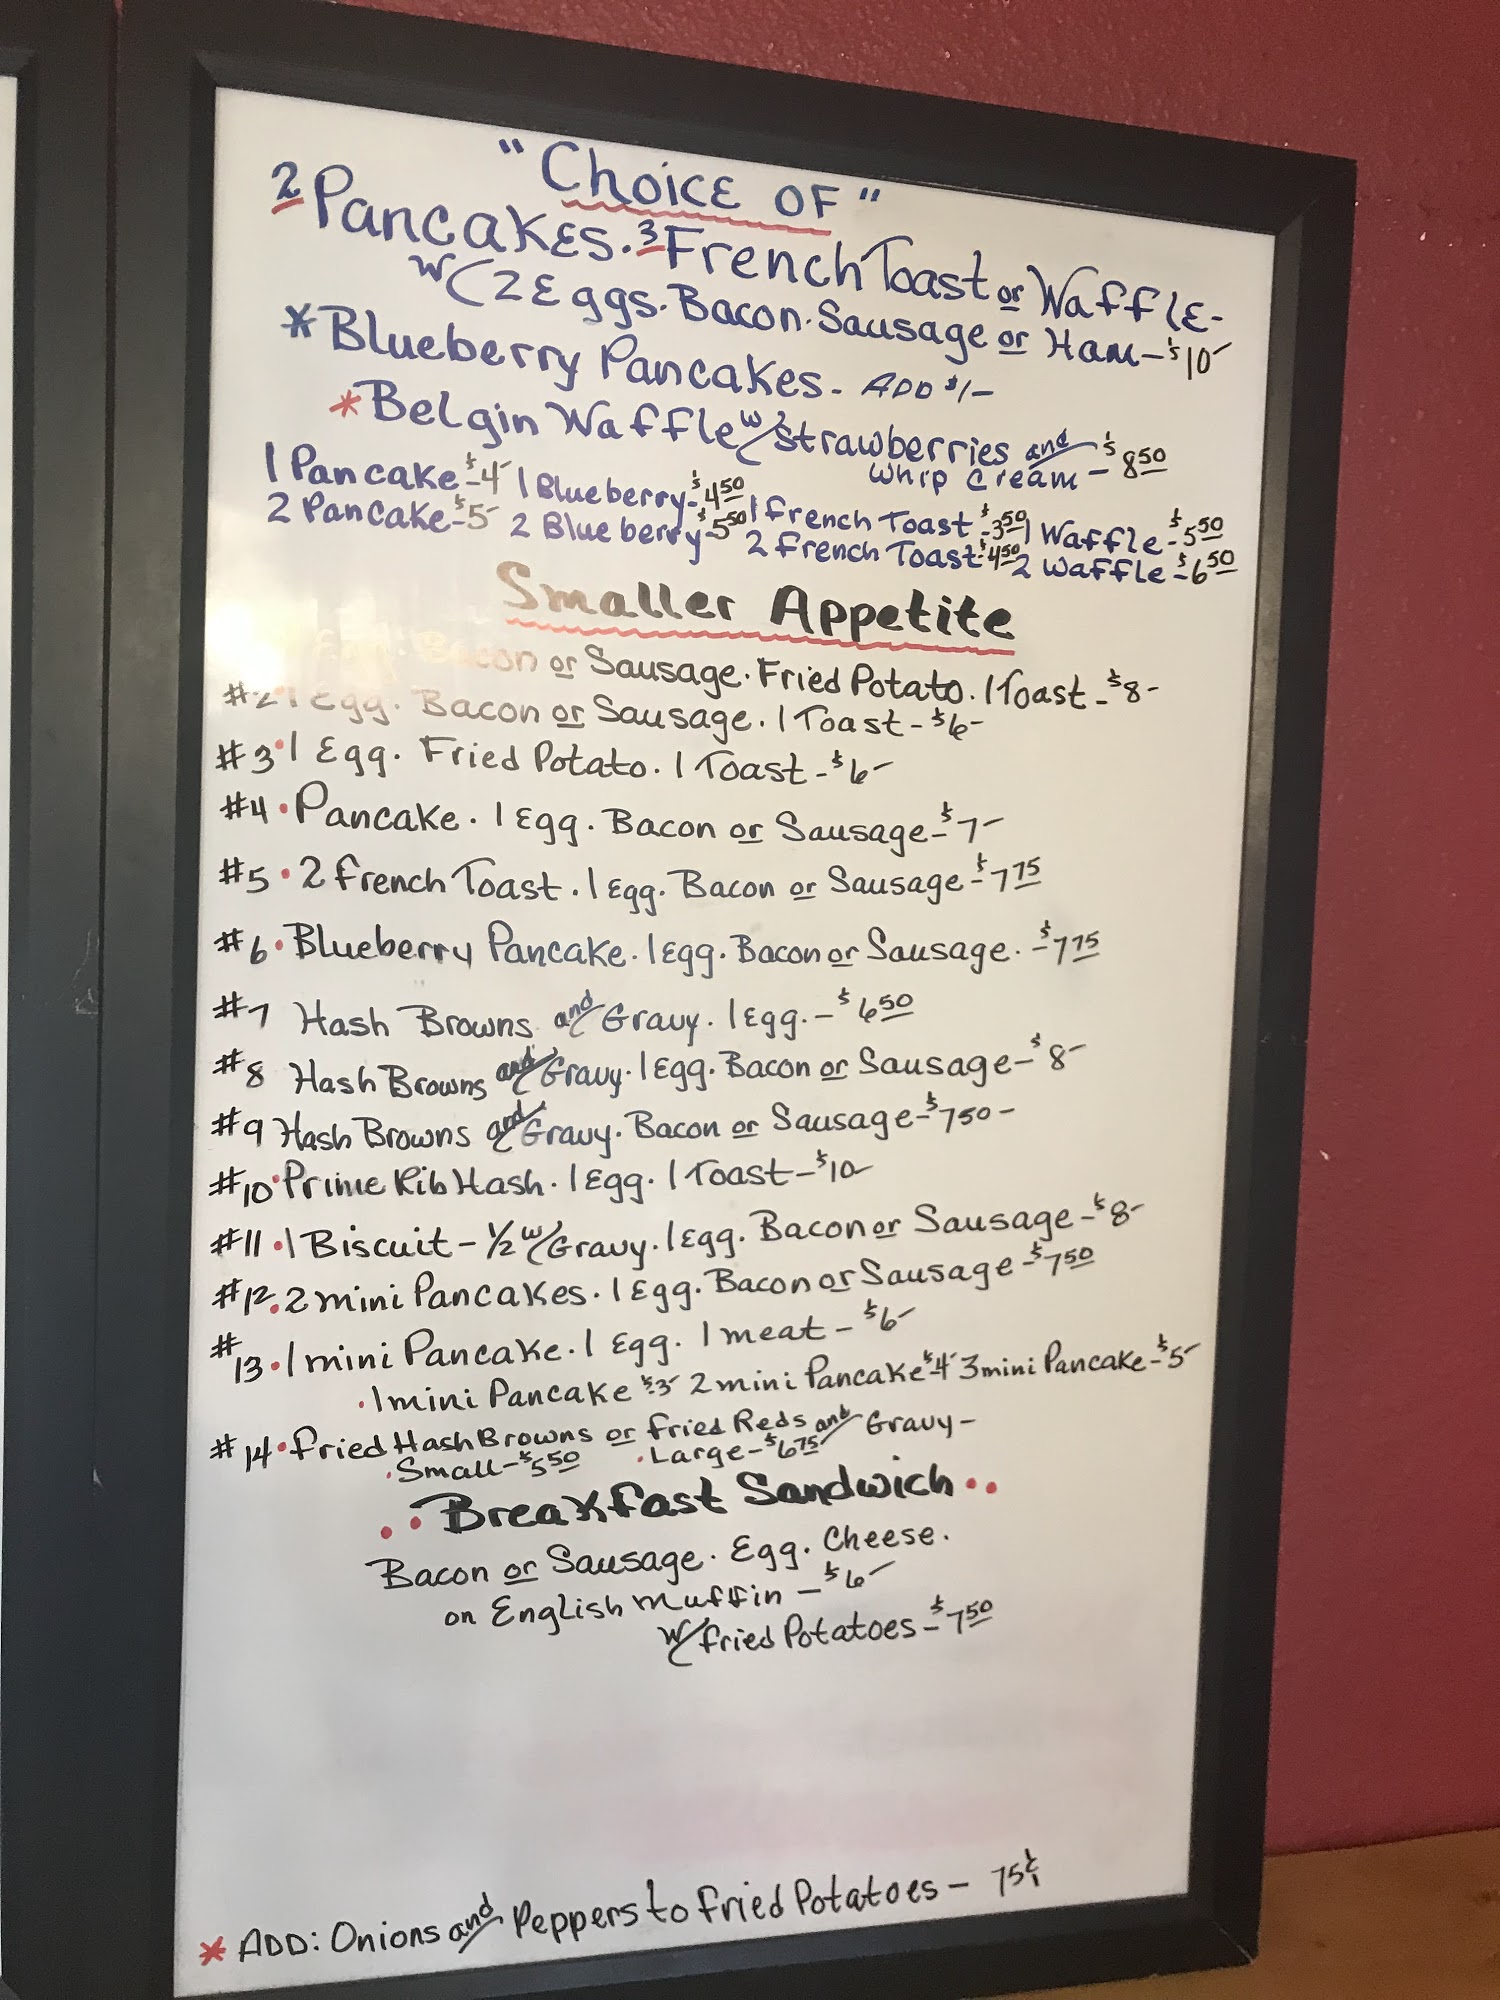 "Choice OF"
2 Pancakes. 3 French Toast or Waffle-
w/ 2 Eggs. Bacon. Sausage or Ham - $10-
* Blueberry Pancakes - ADD $1-
* Belgin Waffle w/ strawberries and
Whip Cream - $8.50
1 Pancake - $4- 1 Blueberry - $4.50 1 French Toast - $3.50 1 Waffle - $5.50
2 Pancake - $5- 2 Blueberry - $5.50 2 French Toast - $4.50 2 Waffle - $6.50
Smaller Appetite
1 Egg. Bacon or Sausage. Fried Potato. 1 Toast - $8-
#2 • 1 Egg. Bacon or Sausage. 1 Toast - $6-
#3 • 1 Egg. Fried Potato. 1 Toast - $6-
#4 • Pancake. 1 Egg. Bacon or Sausage - $7-
#5 • 2 French Toast. 1 Egg. Bacon or Sausage - $7.75
#6 • Blueberry Pancake. 1 Egg. Bacon or Sausage. - $7.75
#7 Hash Browns and Gravy. 1 Egg. - $6.50
#8 Hash Browns and Gravy. 1 Egg. Bacon or Sausage - $8-
#9 Hash Browns and Gravy. Bacon or Sausage - $7.50-
#10 • Prime Rib Hash. 1 Egg. 1 Toast - $10-
#11 • 1 Biscuit - 1/2 w/ Gravy. 1 Egg. Bacon or Sausage - $8-
#12 • 2 mini Pancakes. 1 Egg. Bacon or Sausage - $7.50
#13 • 1 mini Pancake. 1 Egg. 1 meat - $6-
• 1 mini Pancake $3- 2 mini Pancake $4- 3 mini Pancake - $5-
#14 • Fried Hash Browns or Fried Reds and Gravy -
• Small - $5.50 • Large - $6.75
•• Breakfast Sandwich ••
Bacon or Sausage. Egg. Cheese.
on English Muffin - $6-
w/ Fried Potatoes - $7.50
* ADD: Onions and Peppers to Fried Potatoes - 75¢